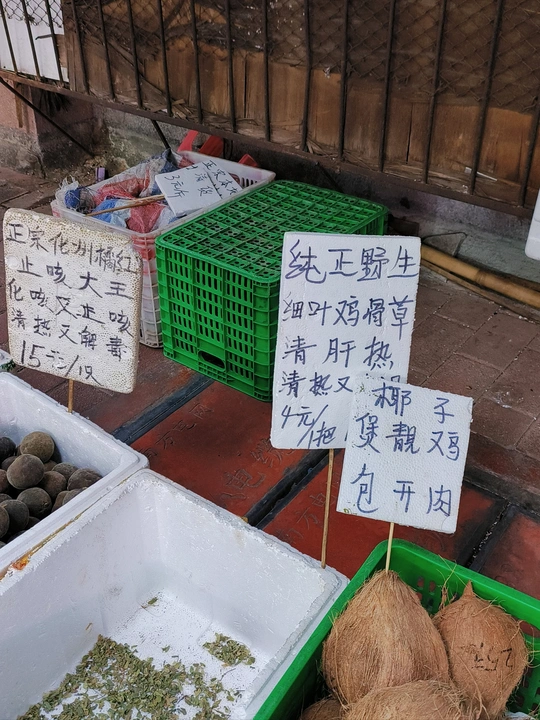 正宗化州橘红
止咳大王
化咳又止咳
清热又解毒
15元/只
3元/
纯正野生
细叶鸡骨草
清肝热
清热又
4元/1把
椰子
煲靓鸡
包开肉